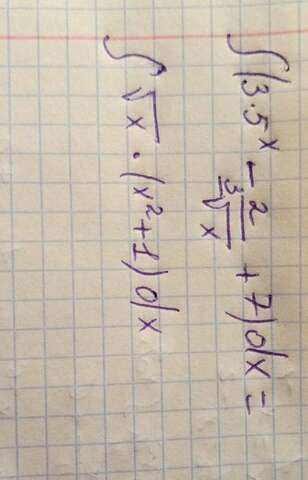 ∫(3·5ˣ − 2/∛x + 7)dx =
∫√x · (x² + 1)dx